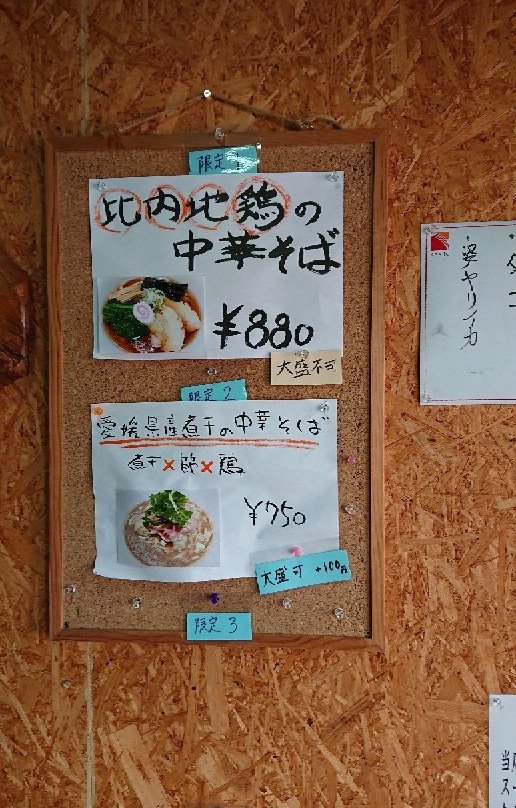 限定 1
比内地鶏の
中華そば
¥880
大盛不可
限定 2
愛媛県産煮干の中華そば
煮干×節×鶏
¥750
大盛可 +100円
限定 3
姿ヤリイカ
当
スー